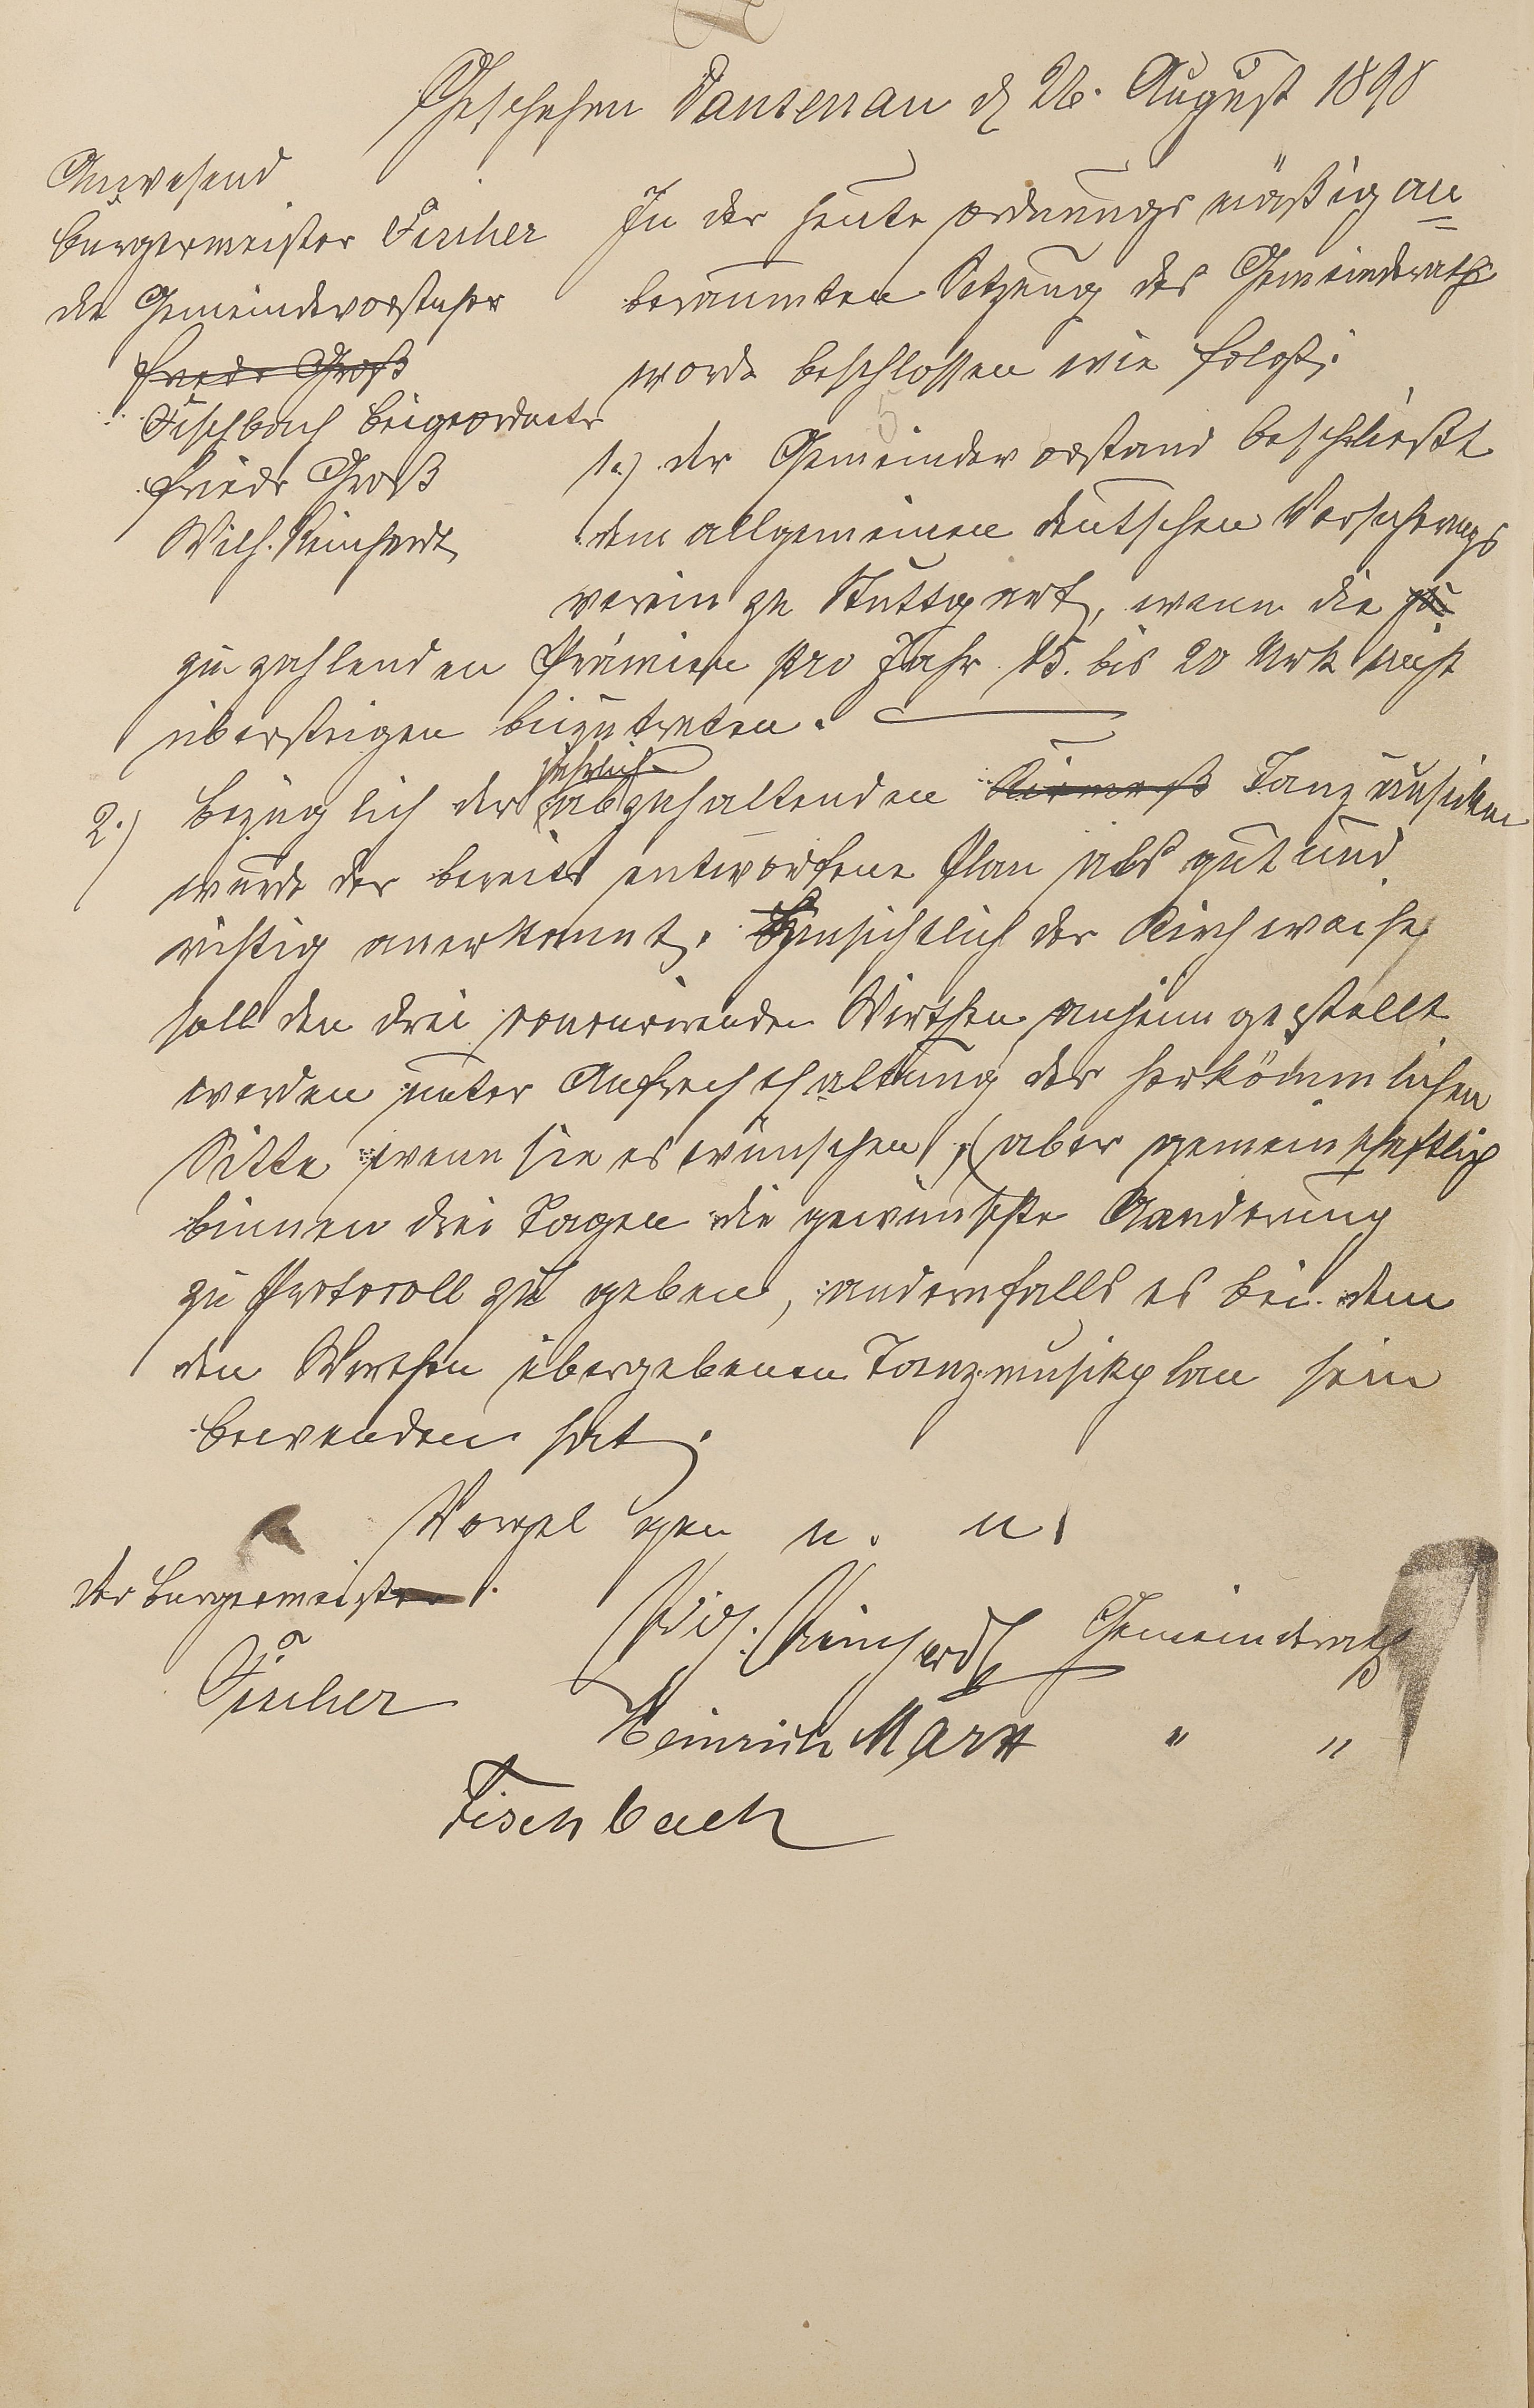 Geschehen Dausenau d 26. August 1898
Anwesend
Bürgermeister Fischer
die Gemeindevorsteher
Friedr Groß
Fischbach Beigeordneter
Friedr Groß
Wilh. Reinhardt
In der heute ordnungsmäßig an=
beraumten Sitzung des Gemeinderaths
wurde beschlossen wie folgt:
1.) der Gemeindevorstand beschließt
dem allgemeinen deutschen Versicherungs
verein zu Stuttgart, wenn die zu
zu zahlenden Prämien pro Jahr 15. bis 20 Mrk nicht
übersteigen beizutreten.
2.) Bezüglich der jährlich abzuhaltenden Kirmeß Tanzmusiken
wurde der bereits entworfene Plan als gut und
richtig anerkannt. Hinsichtlich der Kirchweihe
soll den drei concurirenden Wirthen anheimgestellt
werden unter Aufrechthaltung der herkömmlichen
Sitte wenn sie es wünschen, (aber gemeinschaftlich
binnen drei Tagen die gewünschte Aenderung
zu Protocoll zu geben, andernfalls es bei dem
den Wirthen übergebenen Tanzmusikplan sein
bewenden hat.
Vorgelesen u. u.
Der Bürgermeister
Fischer
Wilh. Reinhardt Gemeinderath
Heinrich Marx " "
Fischbach